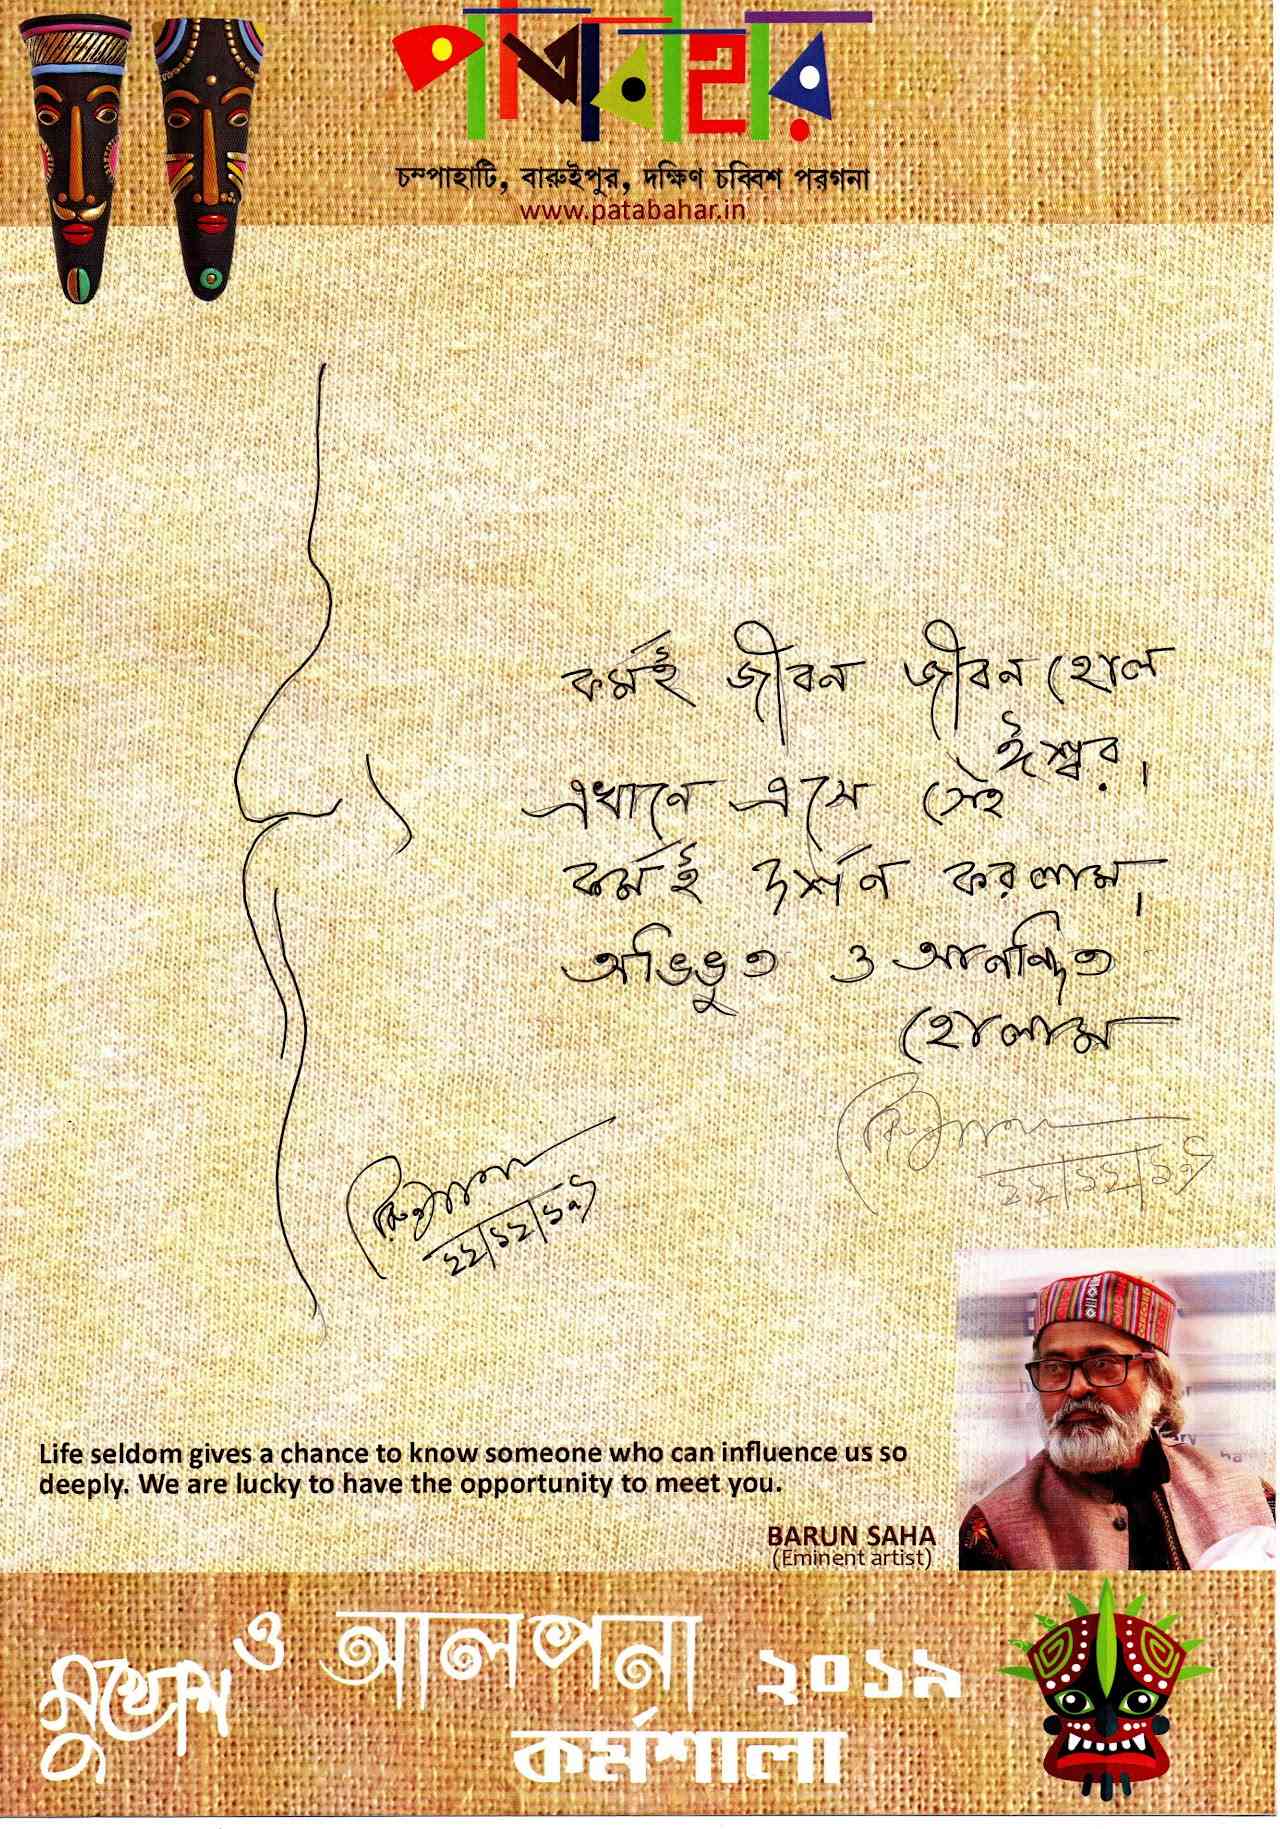 পাতাবাহার
চম্পাহাটি, বারুইপুর, দক্ষিণ চব্বিশ পরগনা
www.patabahar.in
কর্মই জীবন জীবন হোল
ঈশ্বর।
এখানে এসে সেই
কর্মই দর্শন করলাম।
অভিভূত ও আনন্দিত
হোলাম
২২/১২/১৯
২২/১২/১৯
Life seldom gives a chance to know someone who can influence us so
deeply. We are lucky to have the opportunity to meet you.
BARUN SAHA
(Eminent artist)
মুখোশ ও আলপনা ২০১৯
কর্মশালা